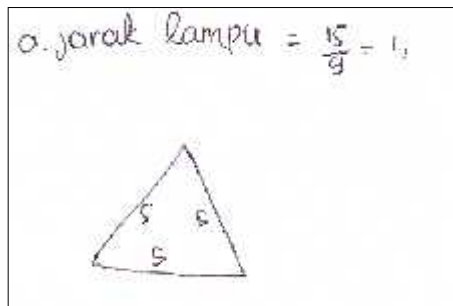 a. jarak lampu = 15/9 = 1,
5 5
5